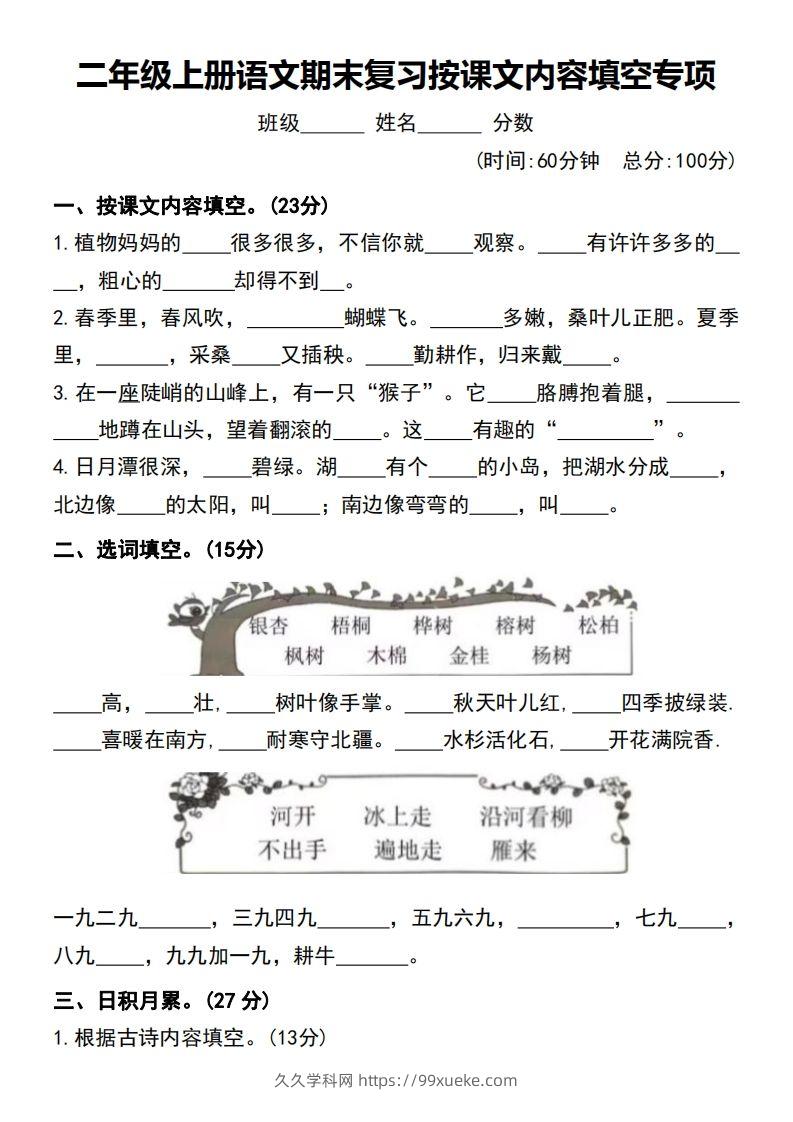 二年级上册语文期末复习按课文内容填空专项
班级______ 姓名______ 分数
(时间:60分钟 总分:100分)
一、按课文内容填空。(23分)
1.植物妈妈的____很多很多，不信你就____观察。____有许许多多的__
__，粗心的______却得不到__。
2.春季里，春风吹，________蝴蝶飞。______多嫩，桑叶儿正肥。夏季
里，______，采桑____又插秧。____勤耕作，归来戴____。
3.在一座陡峭的山峰上，有一只“猴子”。它____胳膊抱着腿，______
____地蹲在山头，望着翻滚的____。这____有趣的“________”。
4.日月潭很深，____碧绿。湖____有个____的小岛，把湖水分成____，
北边像____的太阳，叫____；南边像弯弯的____，叫____。
二、选词填空。(15分)
银杏 梧桐 桦树 榕树 松柏
枫树 木棉 金桂 杨树
____高，____壮,____树叶像手掌。____秋天叶儿红,____四季披绿装.
____喜暖在南方,____耐寒守北疆。____水杉活化石,____开花满院香.
河开 冰上走 沿河看柳
不出手 遍地走 雁来
一九二九______，三九四九______，五九六九，________，七九____，
八九____，九九加一九，耕牛______。
三、日积月累。(27 分)
1.根据古诗内容填空。(13分)
久久学科网 https://99xueke.com